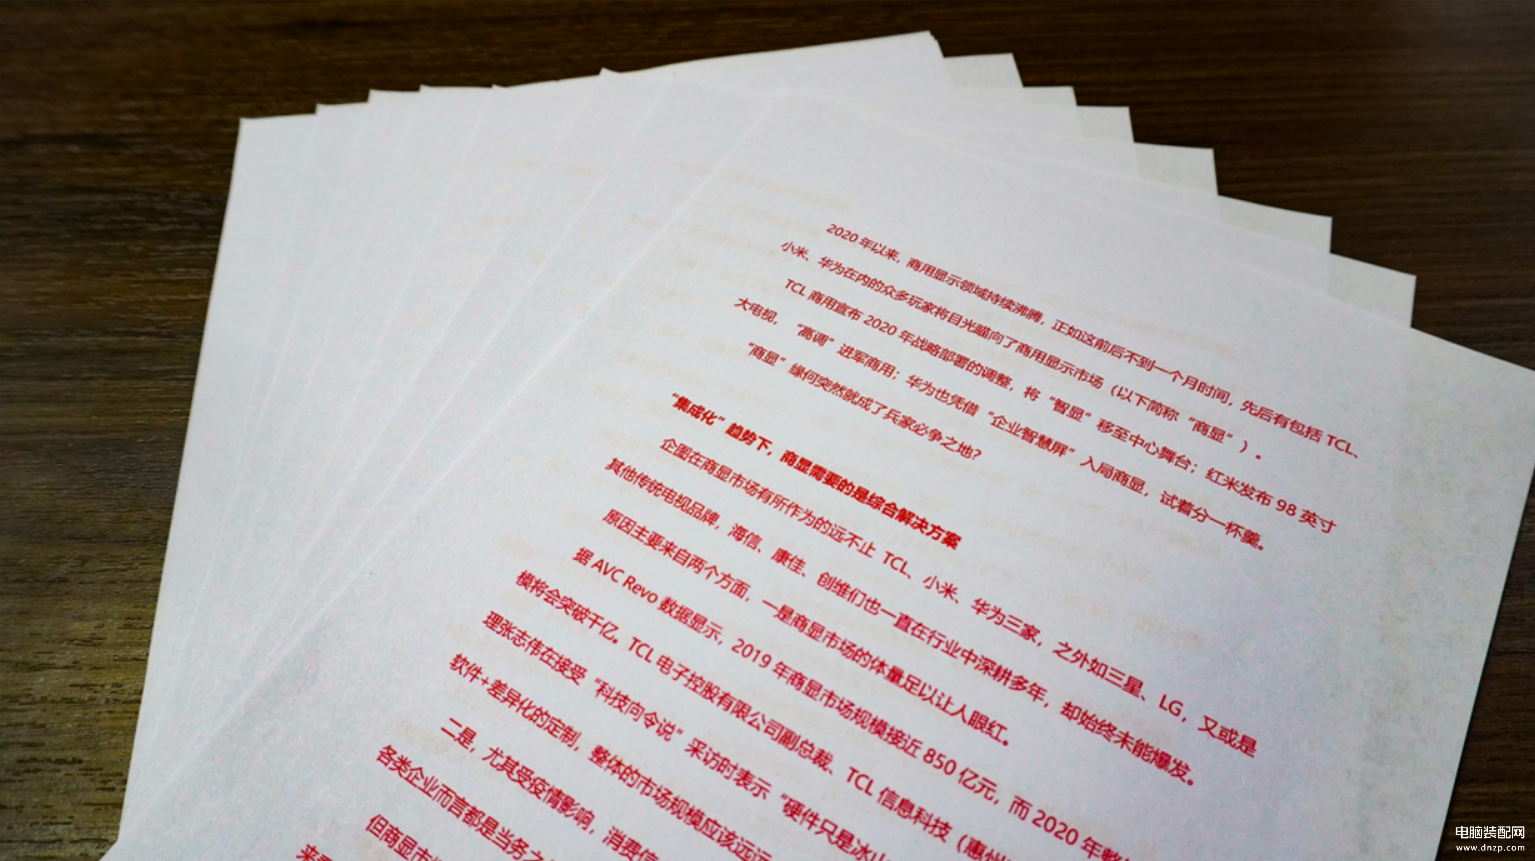 2020 年以来，商用显示领域持续沸腾，正如这前后不到一个月时间，先后有包括 TCL、
小米、华为在内的众多玩家将目光瞄向了商用显示市场（以下简称“商显”）。
TCL 商用宣布 2020 年战略部署的调整，将“智显”移至中心舞台；红米发布 98 英寸
大电视，“高调”进军商用；华为也凭借“企业智慧屏”入局商显，试着分一杯羹。
“商显”缘何突然就成了兵家必争之地？
“集成化”趋势下，商显需要的是综合解决方案
企图在商显市场有所作为的远不止 TCL、小米、华为三家，之外如三星、LG，又或是
其他传统电视品牌，海信、康佳、创维们也一直在行业中深耕多年，却始终未能爆发。
原因主要来自两个方面，一是商显市场的体量足以让人眼红。
据 AVC Revo 数据显示，2019 年商显市场规模接近 850 亿元，而 2020 年整
模将会突破千亿。TCL 电子控股有限公司副总裁、TCL 信息科技（惠州
理张志伟在接受“科技向令说”采访时表示“硬件只是冰山
软件+差异化的定制，整体的市场规模应该远远
二是，尤其受疫情影响，消费信
各类企业而言都是当务之
但商显市
来看
电脑装配网
www.dnzp.com